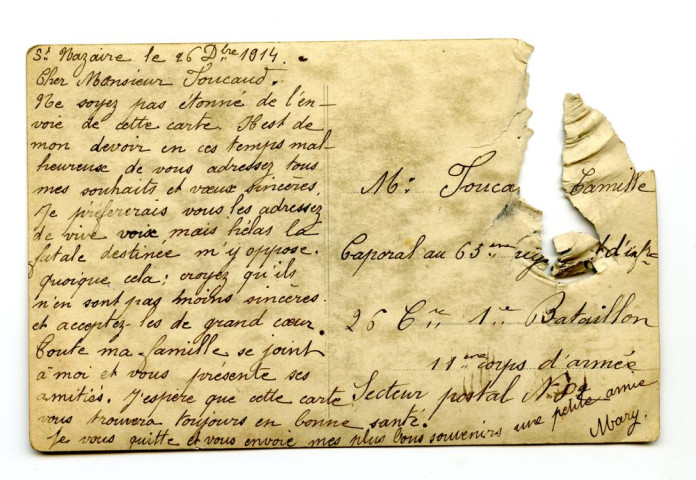 St Nazaire le 26 Dbre 1914.
Cher Monsieur Toucaud.
Ne soyez pas étonné de l'en-
voie de cette carte. Il est de
mon devoir en ces temps mal-
heureuse de vous adressez tous
mes souhaits et vœux sincères.
Je préfererais vous les adressez
de vive voix mais hélas la
fatale destinée m'y oppose.
quoique cela; croyez qu'ils
n'en sont pas moins sincères.
et acceptez-les de grand cœur.
Toute ma famille se joint
à moi et vous présente ses
amitiés. J'espère que cette carte
vous trouvera toujours en bonne santé.
Je vous quitte et vous envoie mes plus bons souvenirs une petite amie
Mary.
Mr Touca Camille
Caporal au 65eme reg t d'infie
26 Cie 1er Bataillon
11eme corps d'armée
Secteur postal No